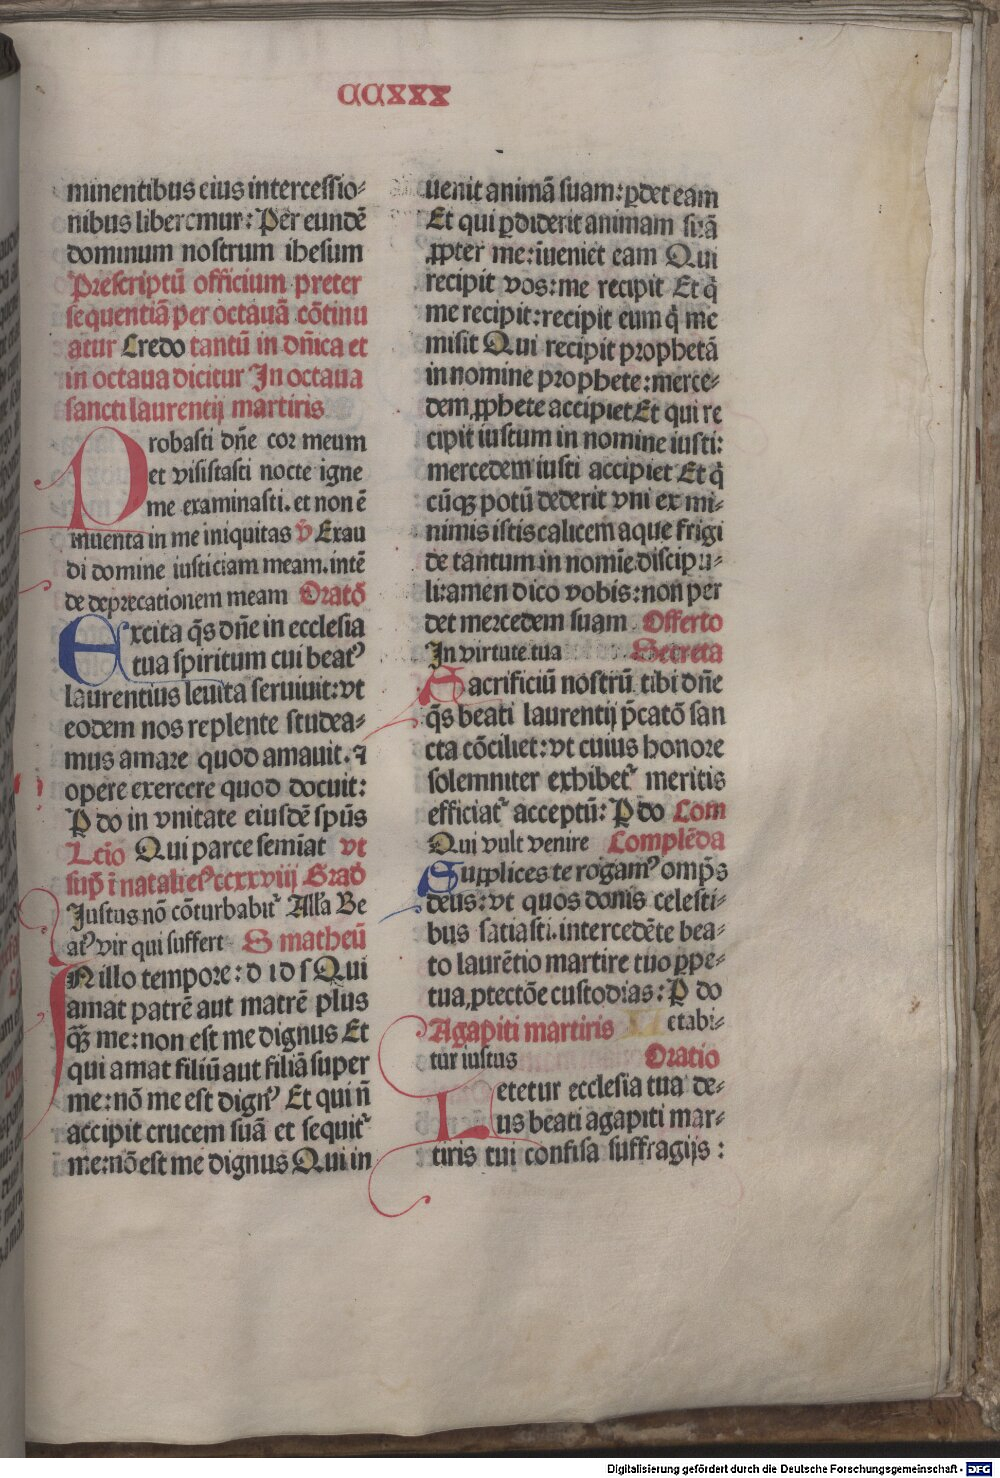 CCXXX
minentibus eius intercessio-
nibus liberemur: Per eundē
dominum nostrum ihesum
Prescriptū officium preter
sequentiā per octauā cōtinu
atur Credo tantū in dn̄ica et
in octaua dicitur In octaua
sancti laurentij martiris
Probasti dn̄e cor meum
et visistasti nocte igne
me examinasti. et non ē
inuenta in me iniquitas V̄ Exau
di domine iusticiam meam. intē
de deprecationem meam Oratō
Excita q̄s dn̄e in ecclesia
tua spiritum cui beatꝰ
laurentius leuita seruiuit: vt
eodem nos replente studea-
mus amare quod amauit. ⁊
opere exercere quod docuit:
P do in vnitate eiusdē spūs
Lctio Qui parce semīat vt
sup̄ ī natalieꝰ ccxxviij Grad̄
Iustus nō cōturbabitᷣ All'a Be
atꝰ vir qui suffert S matheū
IN illo tempore: d i d s Qui
amat patrē aut matrē plus
qᷓꝫ me: non est me dignus Et
qui amat filiū aut filiā super
me: nō me est dignꝰ Et qui n̄
accipit crucem suā et sequitᷣ
me: nō est me dignus Qui in
uenit animā suam: ꝑdet eam
Et qui ꝑdiderit animam suā
ꝓpter me: īueniet eam Qui
recipit vos: me recipit Et q̄
me recipit: recipit eum q̄ me
misit Qui recipit prophetā
in nomine prophete: merce-
dem ꝓphete accipiet Et qui re
cipit iustum in nomine iusti:
mercedem iusti accipiet Et q̄
cūqꝫ potū dederit vni ex mi-
nimis istis calicem aque frigi
de tantum in nomīe discipu-
li: amen dico vobis: non per
det mercedem suam Offerto
In virtute tua Secreta
Sacrificiū nostrū tibi dn̄e
q̄s beati laurentij p̄catō san
cta cōciliet: vt cuius honore
solemniter exhibetᷣ meritis
efficiatᷣ acceptū: P do Com
Qui vult venire Complēda
Supplices te rogamꝰ omp̄s
deus: vt quos donis celesti-
bus satiasti. intercedēte bea-
to laurētio martire tuo ꝑpe-
tua ꝓtectōe custodias: P do
Agapiti martiris Letabi-
tur iustus Oratio
Letetur ecclesia tua de-
us beati agapiti mar-
tiris tui confisa suffragijs:
Digitalisierung gefördert durch die Deutsche Forschungsgemeinschaft - DFG